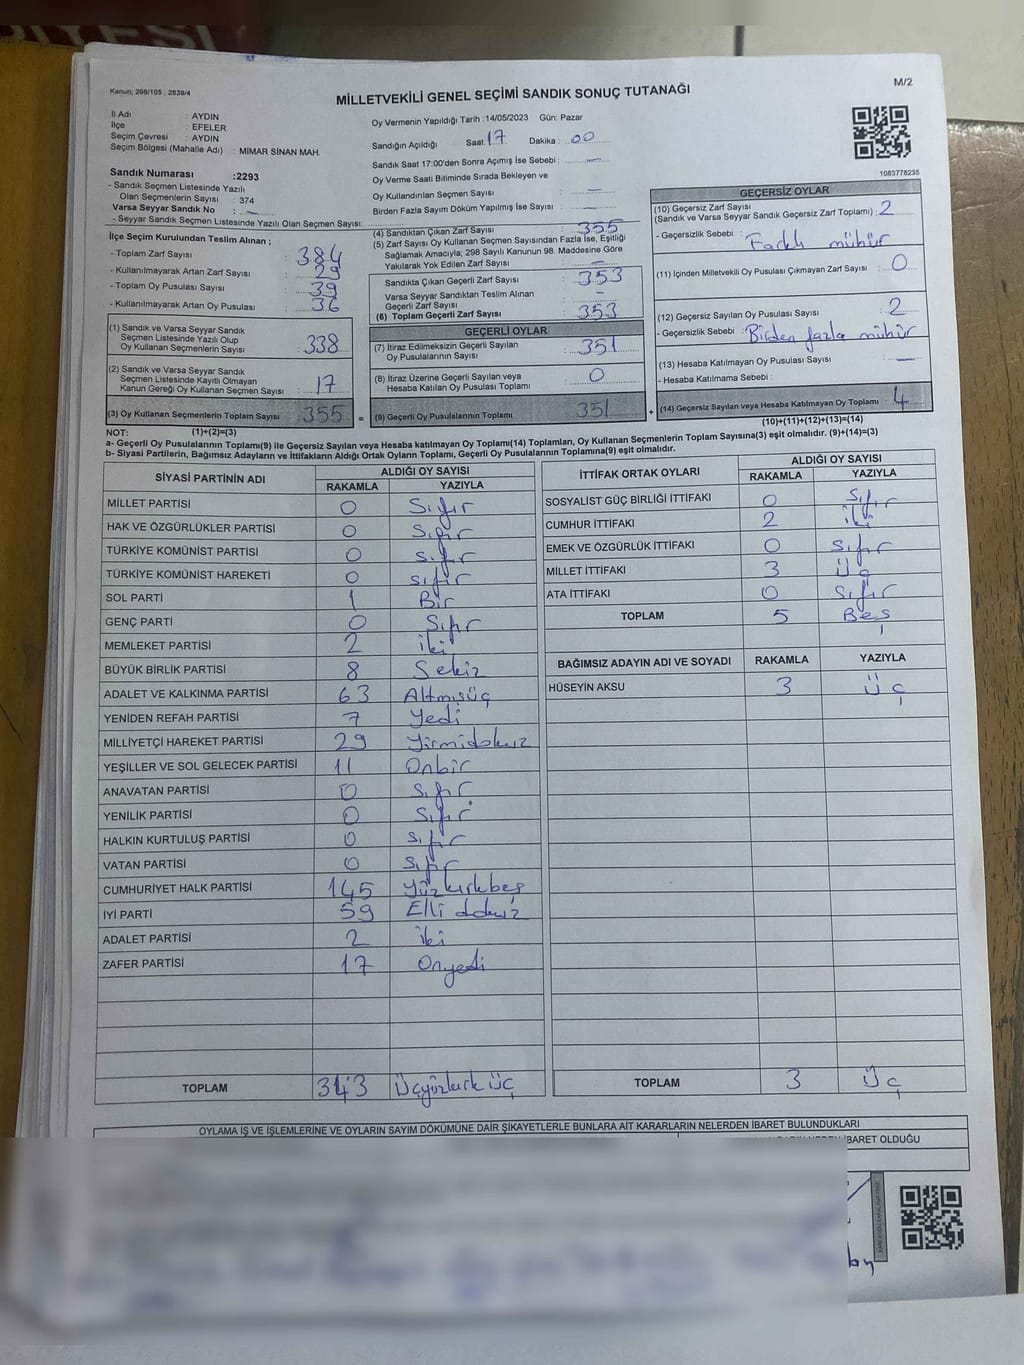 Kanun; 298/105 , 2839/4
MİLLETVEKİLİ GENEL SEÇİMİ SANDIK SONUÇ TUTANAĞI
M/2
İl Adı : AYDIN
İlçe : EFELER
Seçim Çevresi : AYDIN
Seçim Bölgesi (Mahalle Adı) : MİMAR SİNAN MAH.
Sandık Numarası :2293
- Sandık Seçmen Listesinde Yazılı
Olan Seçmenlerin Sayısı : 374
Varsa Seyyar Sandık No : —
- Seyyar Sandık Seçmen Listesinde Yazılı Olan Seçmen Sayısı:
Oy Vermenin Yapıldığı Tarih :14/05/2023 Gün: Pazar
Sandığın Açıldığı Saat: 17 Dakika : 00
Sandık Saat 17:00'den Sonra Açımış İse Sebebi : —
Oy Verme Saati Bitiminde Sırada Bekleyen ve
Oy Kullandırılan Seçmen Sayısı : —
Birden Fazla Sayım Döküm Yapılmış İse Sayısı : —
1083778235
İlçe Seçim Kurulundan Teslim Alınan ;
- Toplam Zarf Sayısı : 384
- Kullanılmayarak Artan Zarf Sayısı : 29
- Toplam Oy Pusulası Sayısı : 39
- Kullanılmayarak Artan Oy Pusulası : 36
(1) Sandık ve Varsa Seyyar Sandık
Seçmen Listesinde Yazılı Olup
Oy Kullanan Seçmenlerin Sayısı : 338
(2) Sandık ve Varsa Seyyar Sandık
Seçmen Listesinde Kayıtlı Olmayan
Kanun Gereği Oy Kullanan Seçmen Sayısı : 17
(3) Oy Kullanan Seçmenlerin Toplam Sayısı 355 =
(4) Sandıktan Çıkan Zarf Sayısı : 355
(5) Zarf Sayısı Oy Kullanan Seçmen Sayısından Fazla İse, Eşitliği
Sağlamak Amacıyla; 298 Sayılı Kanunun 98. Maddesine Göre
Yakılarak Yok Edilen Zarf Sayısı : —
Sandıkta Çıkan Geçerli Zarf Sayısı : 353
Varsa Seyyar Sandıktan Teslim Alınan
Geçerli Zarf Sayısı : —
(6) Toplam Geçerli Zarf Sayısı : 353
GEÇERLİ OYLAR
(7) İtiraz Edilmeksizin Geçerli Sayılan
Oy Pusulalarının Sayısı : 351
(8) İtiraz Üzerine Geçerli Sayılan veya
Hesaba Katılan Oy Pusulası Toplamı : 0
(9) Geçerli Oy Pusulalarının Toplamı 351 +
GEÇERSİZ OYLAR
(10) Geçersiz Zarf Sayısı
(Sandık ve Varsa Seyyar Sandık Geçersiz Zarf Toplamı) : 2
- Geçersizlik Sebebi : Farklı mühür
(11) İçinden Milletvekili Oy Pusulası Çıkmayan Zarf Sayısı : 0
(12) Geçersiz Sayılan Oy Pusulası Sayısı : 2
- Geçersizlik Sebebi : Birden fazla mühür
(13) Hesaba Katılmayan Oy Pusulası Sayısı : —
- Hesaba Katılmama Sebebi :
(14) Geçersiz Sayılan veya Hesaba Katılmayan Oy Toplamı : 4
NOT: (1)+(2)=(3) (10)+(11)+(12)+(13)=(14)
a- Geçerli Oy Pusulalarının Toplamı(9) ile Geçersiz Sayılan veya Hesaba katılmayan Oy Toplamı(14) Toplamları, Oy Kullanan Seçmenlerin Toplam Sayısına(3) eşit olmalıdır. (9)+(14)=(3)
b- Siyasi Partilerin, Bağımsız Adayların ve İttifakların Aldığı Ortak Oyların Toplamı, Geçerli Oy Pusulalarının Toplamına(9) eşit olmalıdır.
SİYASİ PARTİNİN ADI ALDIĞI OY SAYISI
RAKAMLA YAZIYLA
MİLLET PARTİSİ 0 Sıfır
HAK VE ÖZGÜRLÜKLER PARTİSİ 0 Sıfır
TÜRKİYE KOMÜNİST PARTİSİ 0 Sıfır
TÜRKİYE KOMÜNİST HAREKETİ 0 sıfır
SOL PARTİ 1 Bir
GENÇ PARTİ 0 Sıfır
MEMLEKET PARTİSİ 2 iki
BÜYÜK BİRLİK PARTİSİ 8 Sekiz
ADALET VE KALKINMA PARTİSİ 63 Altmışüç
YENİDEN REFAH PARTİSİ 7 Yedi
MİLLİYETÇİ HAREKET PARTİSİ 29 Yirmidokuz
YEŞİLLER VE SOL GELECEK PARTİSİ 11 Onbir
ANAVATAN PARTİSİ 0 Sıfır
YENİLİK PARTİSİ 0 Sıfır
HALKIN KURTULUŞ PARTİSİ 0 Sıfır
VATAN PARTİSİ 0 Sıfır
CUMHURİYET HALK PARTİSİ 145 Yüzkırkbeş
İYİ PARTİ 59 Elli dokuz
ADALET PARTİSİ 2 iki
ZAFER PARTİSİ 17 Onyedi
TOPLAM 343 Üçyüzkırk üç
İTTİFAK ORTAK OYLARI ALDIĞI OY SAYISI
RAKAMLA YAZIYLA
SOSYALİST GÜÇ BİRLİĞİ İTTİFAKI 0 Sıfır
CUMHUR İTTİFAKI 2 iki
EMEK VE ÖZGÜRLÜK İTTİFAKI 0 Sıfır
MİLLET İTTİFAKI 3 Üç
ATA İTTİFAKI 0 Sıfır
TOPLAM 5 Beş
BAĞIMSIZ ADAYIN ADI VE SOYADI RAKAMLA YAZIYLA
HÜSEYİN AKSU 3 Üç
TOPLAM 3 Üç
OYLAMA İŞ VE İŞLEMLERİNE VE OYLARIN SAYIM DÖKÜMÜNE DAİR ŞİKAYETLERLE BUNLARA AİT KARARLARIN NELERDEN İBARET BULUNDUKLARI
İBARET OLDUĞU